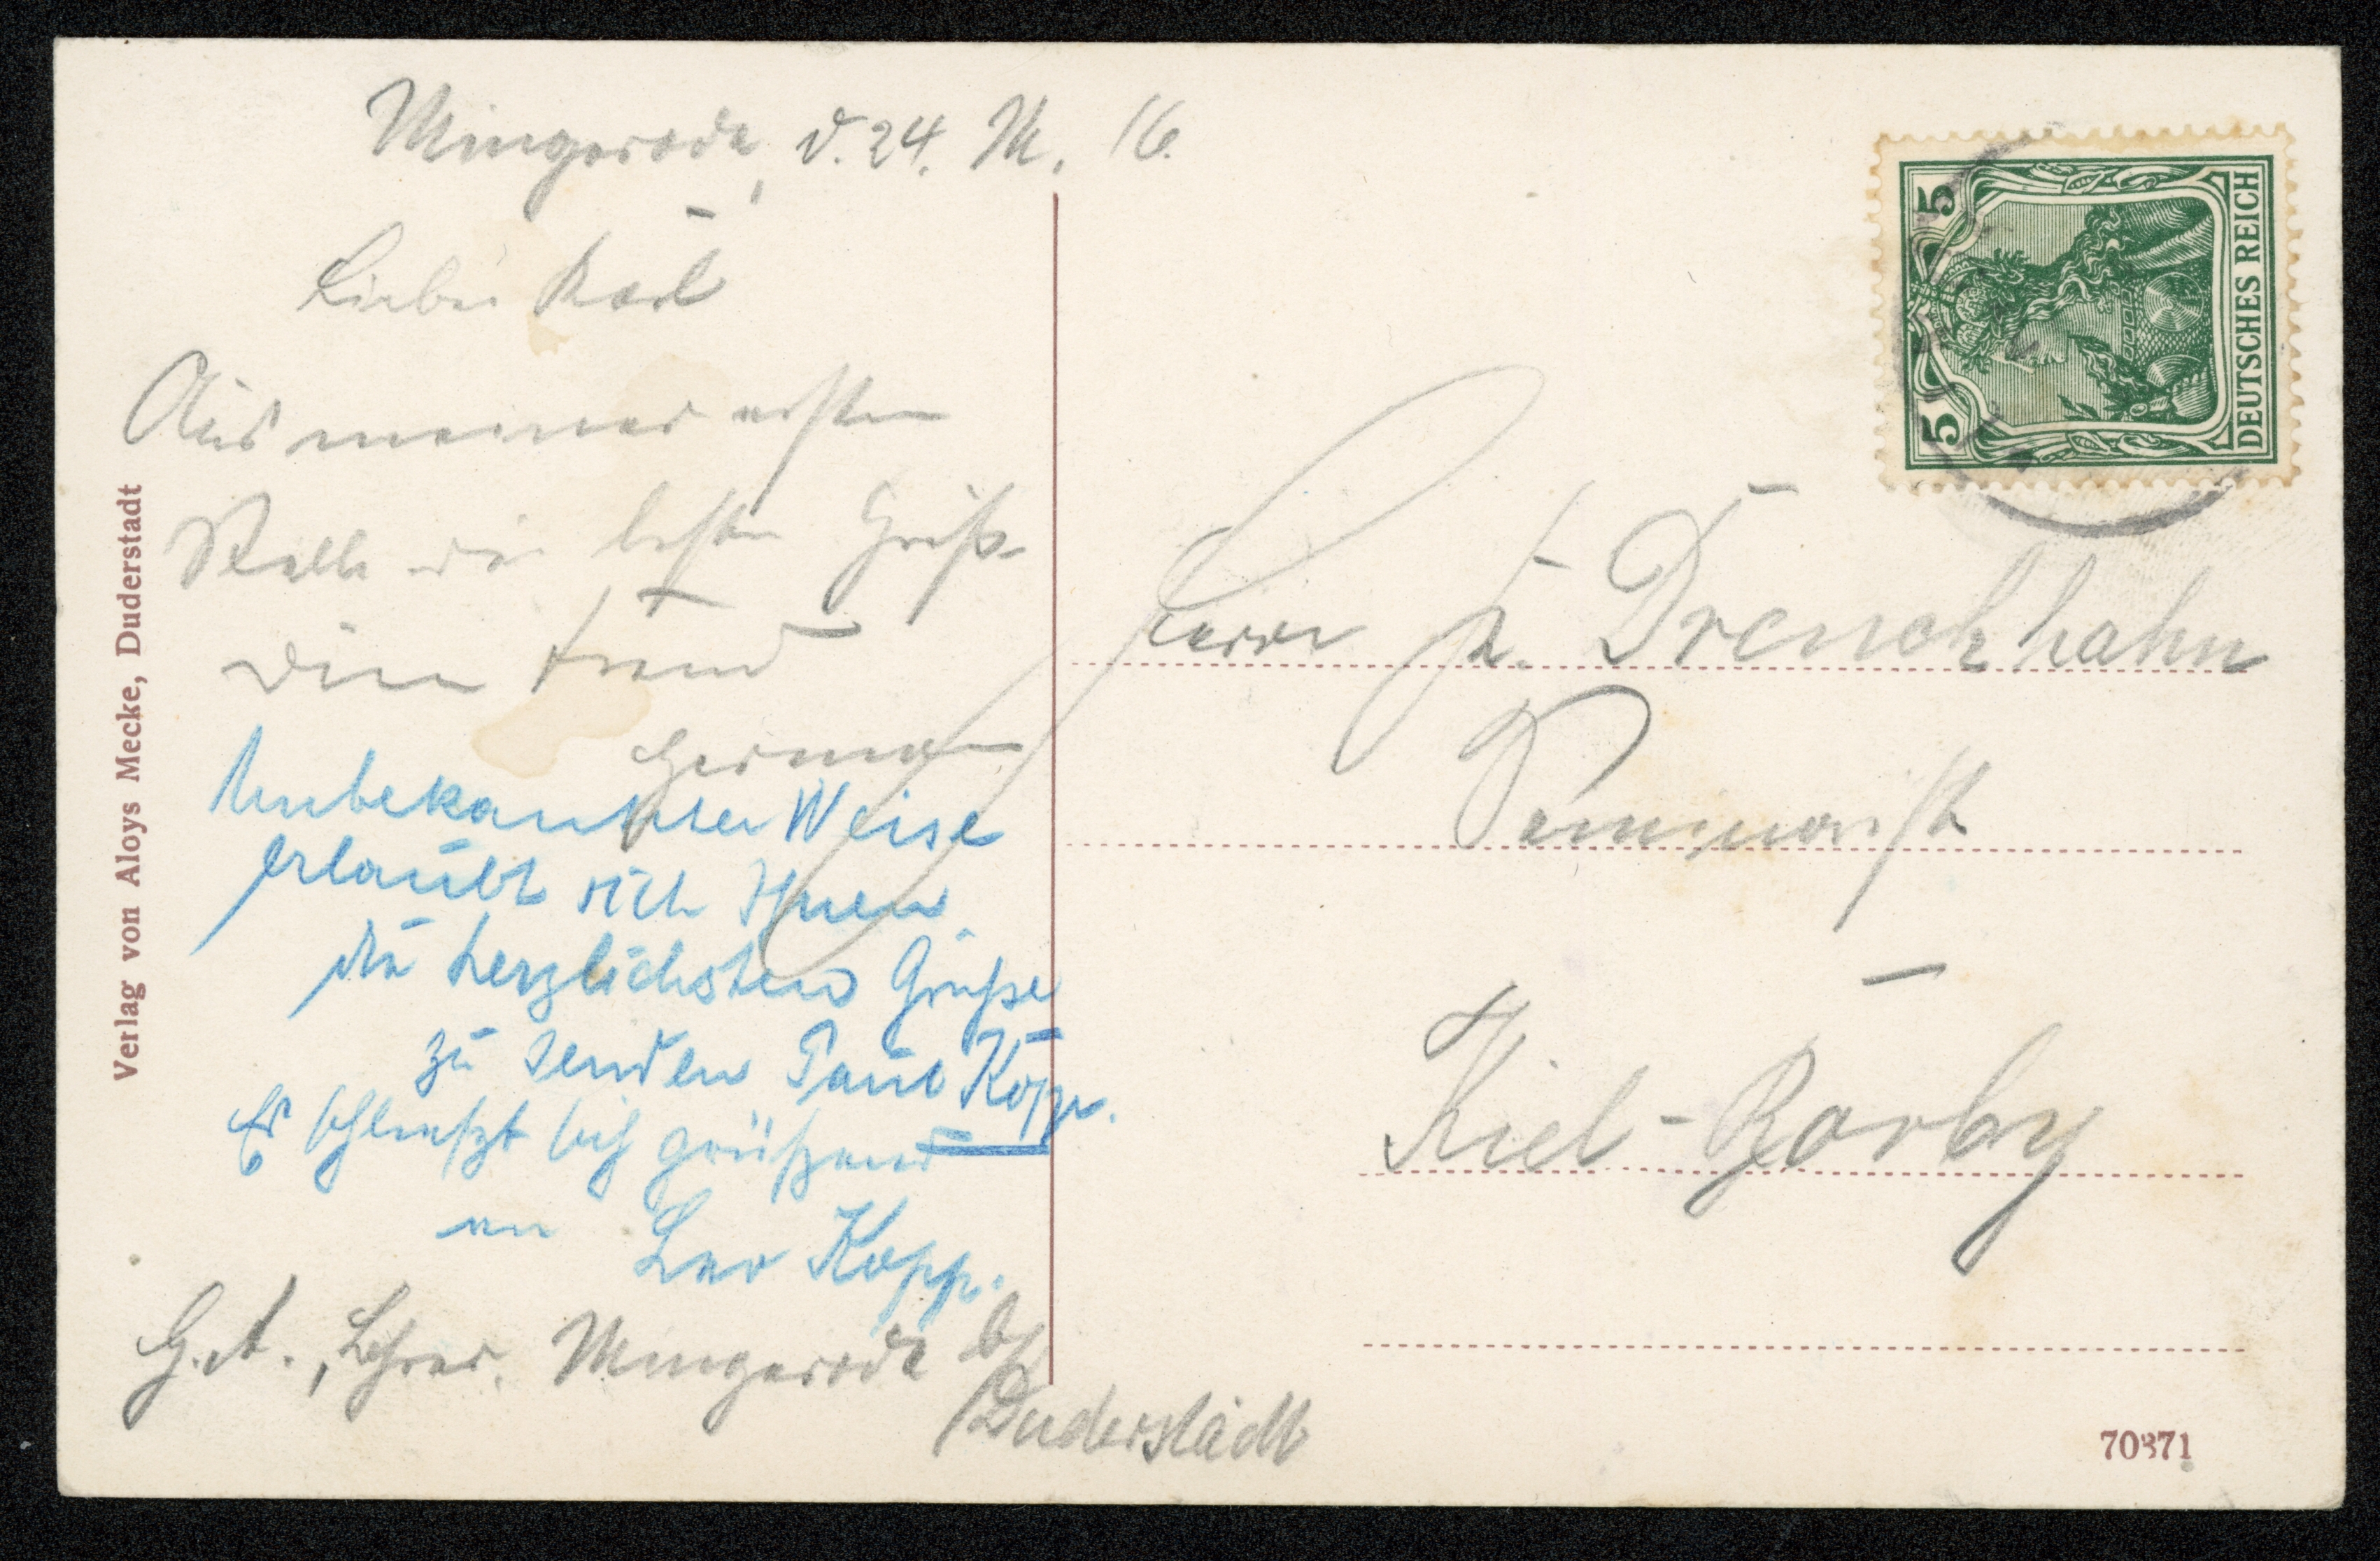 Mingerode, d. 24. M. 16.
Lieber Karl
Aus meiner ersten
Stelle die besten Grüße
Dein Freund
Herman
Unbekannter Weise
erlaubt sich Ihnen
die herzlichsten Grüße
zu senden Paul Kopp.
Es schließt sich grüßend
an Leo Kopp.
H. A., Lehrer. Mingerode b/
Duderstadt
Herrn K. Drenckhahn
Kiel-Borby
Verlag von Aloys Mecke, Duderstadt
5 5
DEUTSCHES REICH
70371